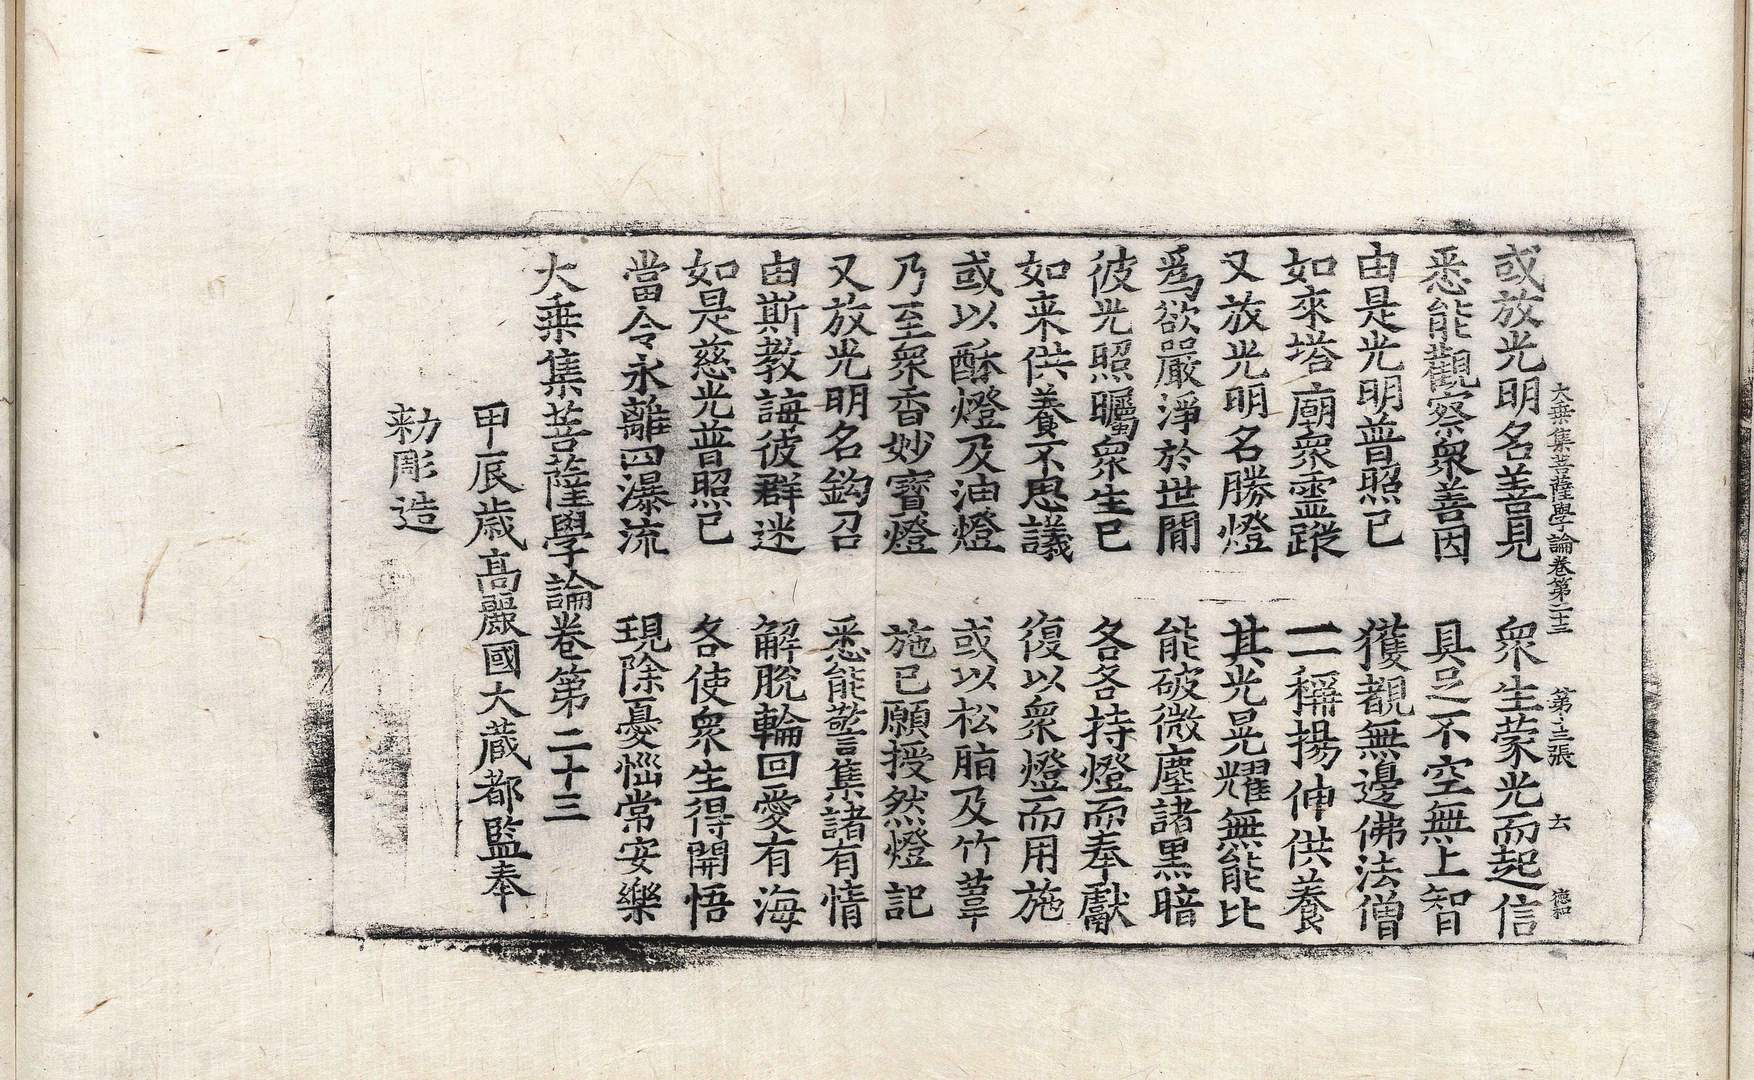 大乗集菩薩學論卷第二十三 第十三張 去 德和
或放光明名善見 衆生蒙光而起信
悉能觀察衆善因 具足不空無上智
由是光明普照已 獲覩無邊佛法僧
如來塔廟衆靈蹤 一一稱揚伸供養
又放光明名勝燈 其光晃耀無能比
爲欲嚴淨於世間 能破微塵諸黑暗
彼光照曯衆生已 各各持燈而奉獻
如来供養不思議 復以衆燈而用施
或以酥燈及油燈 或以松脂及竹葦
乃至衆香妙寶燈 施已願授然燈記
又放光明名鈎召 悉能警集諸有情
由斯教誨彼群迷 解脫輪回愛有海
如是慈光普照已 各使衆生得開悟
當令永離四瀑流 現除憂惱常安樂
大乗集菩薩學論卷第二十三
甲辰歲高麗國大藏都監奉
勑彫造